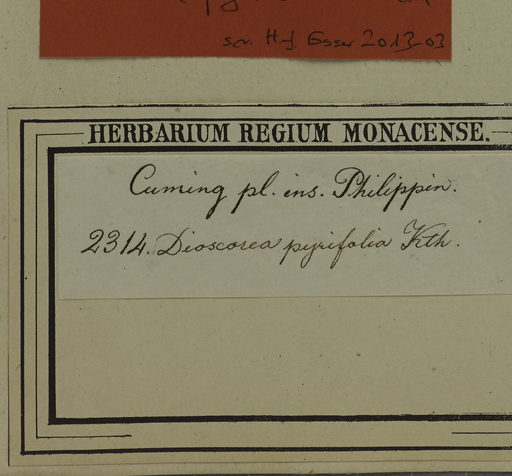 scr. H.-J. Esser 2013-03
HERBARIUM REGIUM MONACENSE.
Cuming pl. ins. Philippin.
2314. Dioscorea pyrifolia Kth.